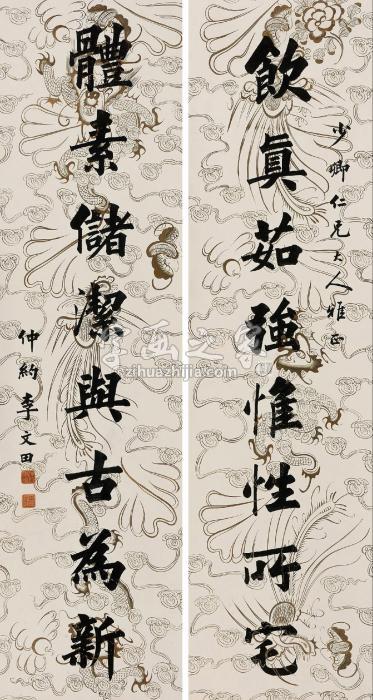 飲真茹強惟性所宅
少卿仁兄大人雅正
體素儲潔與古為新
仲約李文田
字画之家
zihuazhijia.com